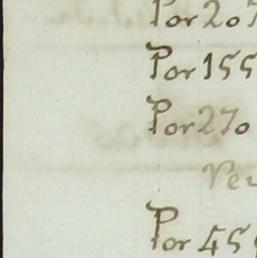 Por 207
Por 155
Por 270
Por 455